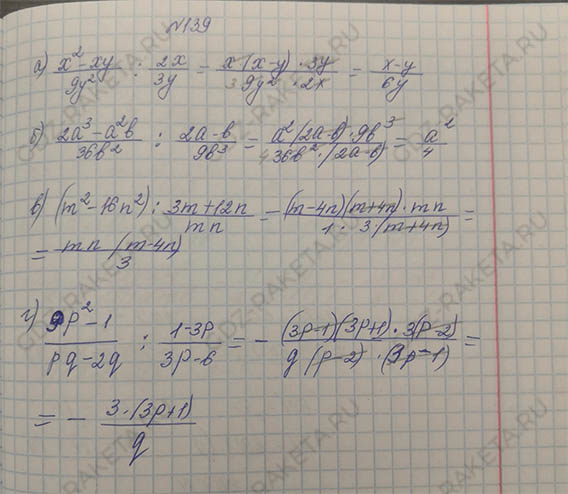 №139
а) x²-xy/9y² : 2x/3y = x·(x-y)·3y/3 9y²·2x = x-y/6y
б) 2a³-a²b/36b² : 2a-b/9b³ = a²(2a-b)·9b³/4 36b²·(2a-b) = a²/4
в) (m²-16n²) : 3m+12n/mn = (m-4n)(m+4n)·mn/1·3·(m+4n) =
= mn(m-4n)/3
г) 9p²-1/pq-2q : 1-3p/3p-6 = -(3p-1)(3p+1)·3(p-2)/q(p-2)·(3p-1) =
= - 3·(3p+1)/q
GDZ-RAKETA.RU